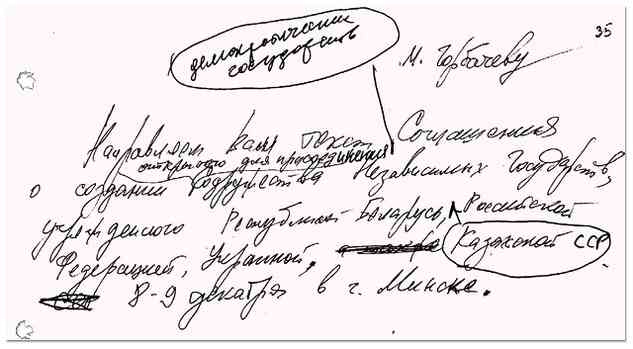 35
демократических
государств
М. Горбачеву
Направляем вам текст Соглашения
открытого для присоединения
о создании Содружества Независимых Государств,
учрежденного Республикой Беларусь, Российской
Федерацией, Украиной, Казахской ССР
8-9 декабря в г. Минске.